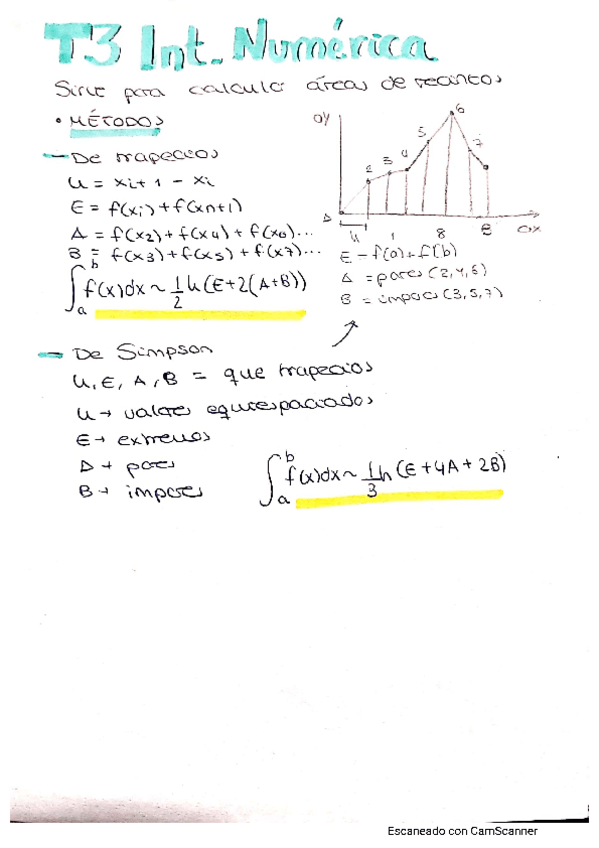 T3 Int. Numérica
Sirve para calcular áreas de recintos
• MÉTODOS
— De trapecios
h = xi+1 - xi
E = f(xi) + f(xn+1)
A = f(x2) + f(x4) + f(x6)...
B = f(x3) + f(x5) + f(x7)...
∫ₐᵇ f(x)dx ~ 1/2 h (E+2(A+B))
OY
2 3 4 5 6 7
A
h 1 8 B OX
E - f(a)+f(b)
A = pares (2,4,6)
B = impares (3,5,7)
— De Simpson
h, E, A, B = que trapecios
h → valores equiespaciados
E → extremos
A → pares
B → impares
∫ₐᵇ f(x)dx ~ 1/3 h (E + 4A + 2B)
Escaneado con CamScanner